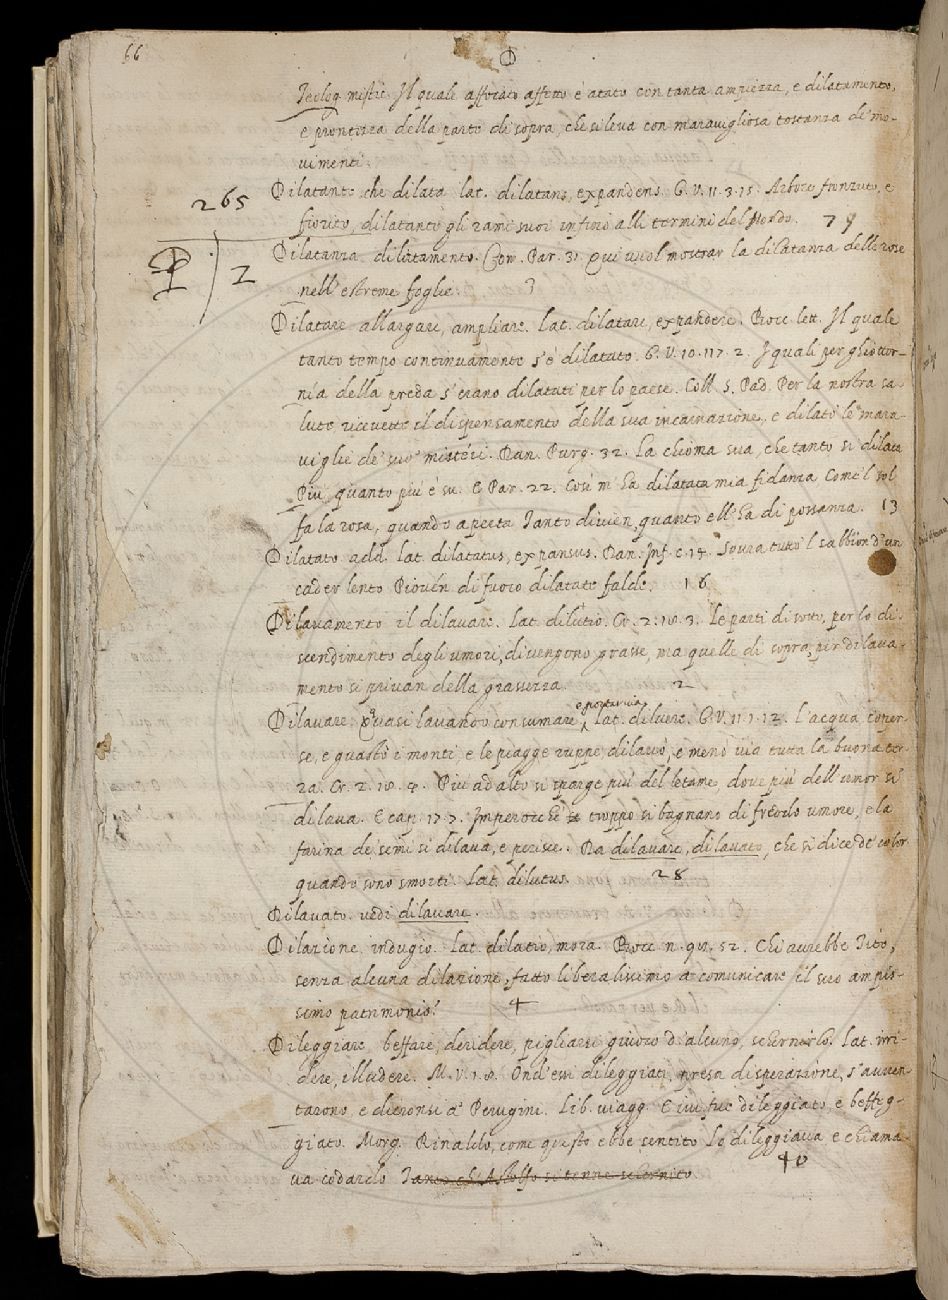 66
D
Teolog. mistic. Il quale affocato affetto è atato con tanta ampiezza, e dilatamento,
e prontezza della parte di sopra, che si leva con maravigliosa tostanza di mo-
vimenti.
Dilatante che dilata lat. dilatans, expandens. G. V. 11. 3. 15. Arbore fronzuto, e
265
fiorito, dilatante gli rami suoi infino alli termini del Mondo. 79
Dilatanza dilatamento. Com. Par. 31. Qui vuol mostrar la dilatanza delle rose
2
nell'estreme foglie. 3
Dilatare allargare, ampliare. lat. dilatare, expandere. Bocc. lett. Il quale
tanto tempo continuamente s'è dilatato. G. V. 10. 117. 2. I quali per ghiottor-
nia della preda s'erano dilatati per lo paese. Coll. S. Pad. Per la nostra sa-
lute ricevette il dispensamento della sua incarnazione, e dilatò le mara-
viglie de' suo' misteri. Dan. Purg. 32. La chioma sua, che tanto si dilata
Più, quanto più è su. E Par. 22. Così m'ha dilatata mia fidanza Come 'l sol
fa la rosa, quando aperta Tanto divien, quanto ell'ha di possanza. 13
Dilatato add. lat. dilatatus, expansus. Dan. Inf. c. 14. Sovra tutto 'l sabbion d'un
cader lento Piovén di fuoco dilatate falde. 16
Dilavamento il dilavare. lat. dilutio. Cr. 2. 18. 3. Le parti di sotto, per lo di-
scendimento degli umori, divengono grasse, ma quelle di sopra, per dilava-
mento si privan della grassezza. 2
e portar via
Dilavare. Quasi lavando consumare, lat. diluere. G. V. 11. 1. 12. L'acqua coper-
se, e guastò i monti, e le piagge ruppe, dilavò, e menò via tutta la buona ter-
ra. Cr. 2. 18. 4. Più ad alto si sparge più del letame, dove più dell'umor si
dilava. E cap. 17. 7. Imperocché troppo si bagnano di freddo umore, e la
farina de' semi si dilava, e perisce. Da dilavare, dilavato, che si dice de' color
quando sono smorti. lat. dilutus. 28
Dilavato. vedi dilavare.
Dilazione indugio. lat. dilatio, mora. Bocc. n. 98. 52. Chi avrebbe Tito,
senza alcuna dilazione, fatto liberalissimo a comunicare il suo ampis-
simo patrimonio? 4
Dileggiare beffare, deridere, pigliarsi giuoco d'alcuno, schernirlo. lat. irri-
dere, illudere. M. V. 1. 8. Ond'essi dileggiati, presa disperazione, s'avven-
tarono, e dieronsi a' Perugini. Lib. viagg. E ivi fue dileggiato, e beffeg-
giato. Morg. Rinaldo, come questo ebbe sentito Lo dileggiava e chiama-
va codardo Tanto ch'Astolfo si tenne schernito 40